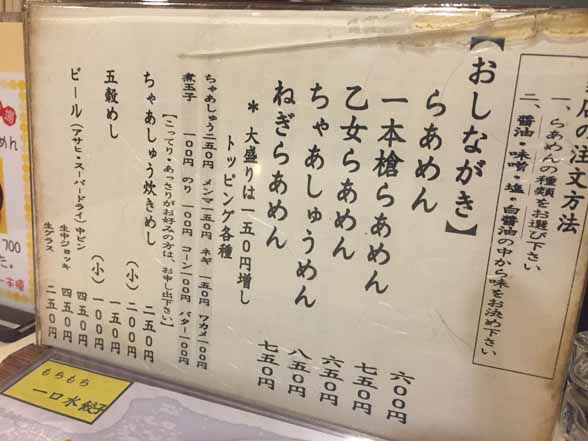 店の注文方法
一、らあめんの種類をお選び下さい
二、醤油・味噌・塩・白醤油の中から味をお決め下さい
【おしながき】
らあめん 六〇〇円
一本槍らあめん 七五〇円
乙女らあめん 六五〇円
ちゃあしゅうめん 八五〇円
ねぎらあめん 七五〇円
*大盛りは一五〇円増し
トッピング各種
ちゃあしゅう二五〇円 メンマ一五〇円 ネギ一五〇円 ワカメ一〇〇円
煮玉子 一〇〇円 のり一〇〇円 コーン一〇〇円 バター一〇〇円
【こってり・あっさりがお好みの方は、お申し出下さい】
ちゃあしゅう炊きめし 二五〇円
(小)二〇〇円
五穀めし 一五〇円
(小)一〇〇円
ビール(アサヒ・スーパードライ)中ビン 四五〇円
生中ジョッキ 四五〇円
生グラス 二五〇円
めん
700
た。
もちもち
一口水餃子